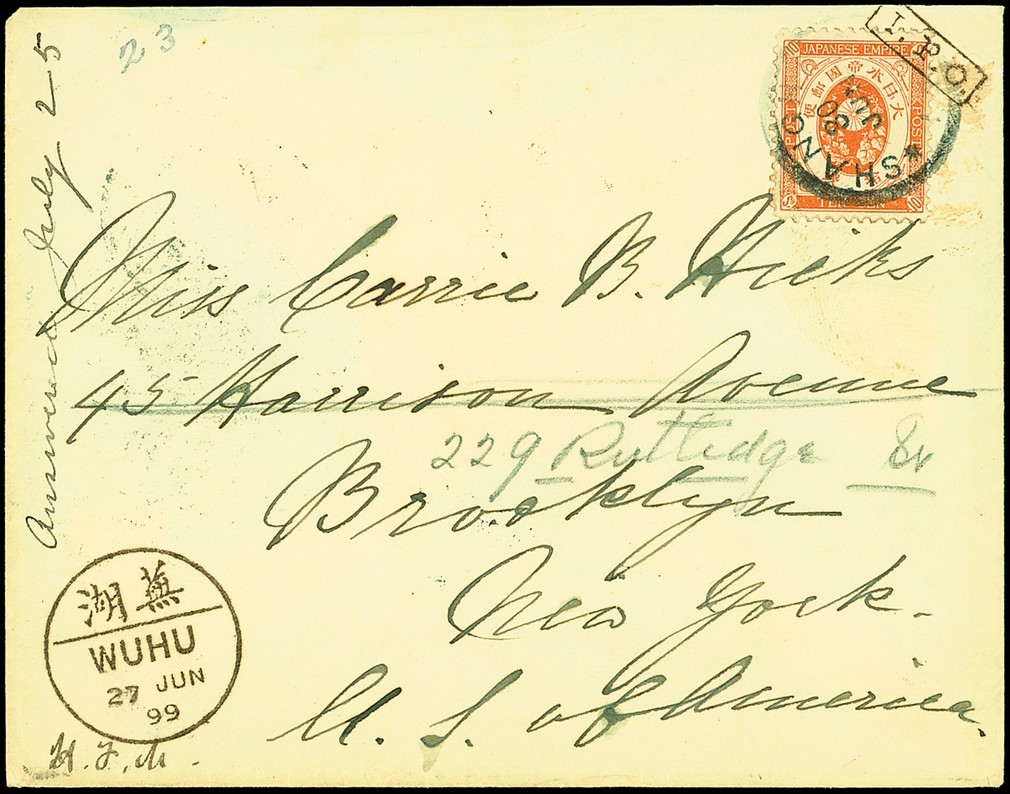 23
Answered July 25
I.P.O.
10 JAPANESE EMPIRE 10
大日本帝國郵便
POST
POST
TEN SEN 10
SHANG
30
JU
Miss Carrie B. Hicks
45 Harrison Avenue
229 Rutledge St
Brooklyn
New York.
U. S. of America.
蕪湖
WUHU
27 JUN
99
H. F. M.